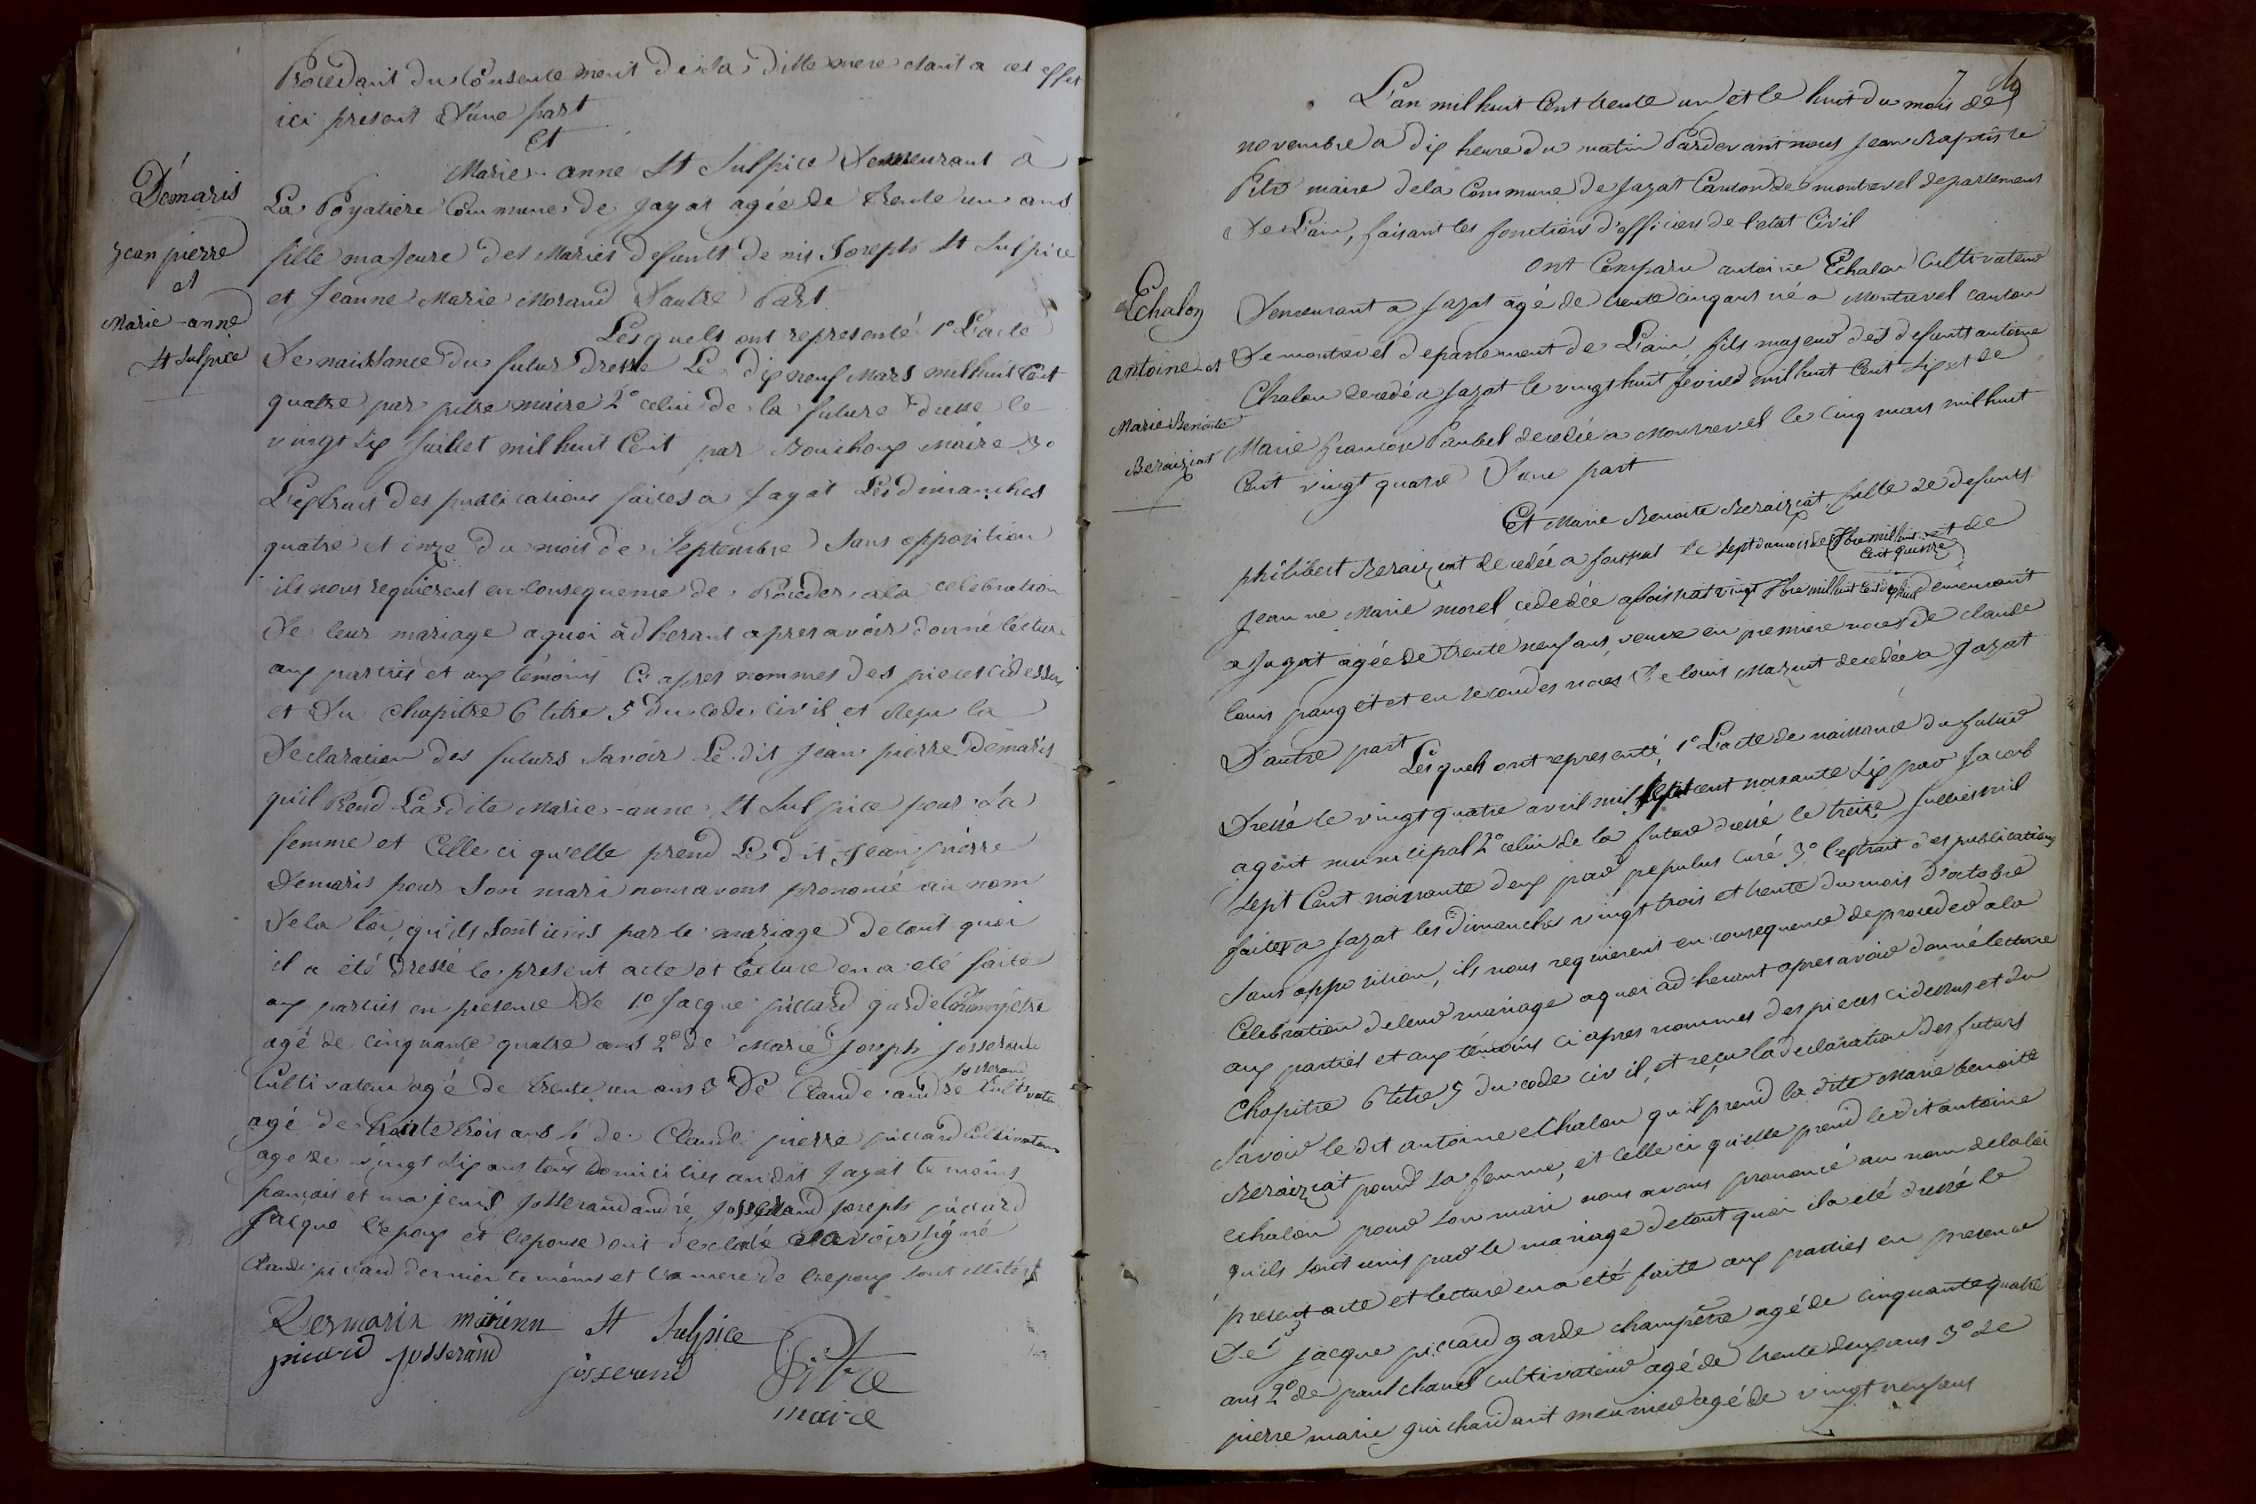 Procedant du Consente ment de sa ditte mere etant a cet effet
ici present d'une part
Et
Marie-anne St Sulpice Demeurant à
La Poyatiere Commune de Jayat agée de Trente un ans
fille majeure des Mariés defunts denis Joseph St Sulpice
et Jeanne Marie Morand D'autre Part
Les quels ont representé 1° L'acte
De naissance du futur Dressé Le dix neuf Mars mil huit Cent
quatre par pitre maire 2° celui de la future dressé le
vingt six Juillet mil huit Cent par Bouchoux Maire 3°
L'extrait des publications faites a Jayat Les dimanches
quatre et onze du mois de Septembre Sans opposition
ils nous requierent en Consequence de Proceder a la celebration
De leur mariage a quoi adherant apres avoir donné lecture
aux parties et aux témoins Ci apres nommes des pieces cidessus
et du chapitre 6 titre 5 du Code Civil et Reçu la
Declaration des futurs Savoir Le dit Jean pierre Démaris
qu'il Prend La dite Marie-anne St Sulpice pour Sa
femme et Celle ci qu'elle prend Le dit Jean pierre
Demaris pour Son mari nous avons prononcé au nom
De la loi, qu'ils Sont unis par le mariage de tout quoi
il a été Dressé le present acte et lecture en a été faite
aux parties en presence De 1° Jacque piccard garde Champêtre
agé de Cinquante quatre ans 2° de Marie Joseph Josserand
Cultivateur agé de trente un ans 3° De Claude andré Josserand Cultivateur
agé de trente trois ans 4 de Claude pierre piccard cultivateur
age de vingt Six ans tous Domicilies au dit Jayat temoins
francais et majeurs Josserand andré, Josserand Joseph piccard
Jacque L'epoux et l'epouse ont declaré savoir signé
Claude piccard dernier temoins et la mere de l'epoux Sont illitérés
Dermarin St Sulpice
picard Josserand
Josserand
Pitre
maire
Démaris
Jean pierre
et
Marie-anne
St Sulpice
7
L'an mil huit Cent trente un et le huit du mois de
novembre a dix heure du matin Pardevant nous Jean Baptiste
Pitre maire dela Commune de Jayat Canton de montrevel departement
De L'ain, faisant les fonctions d'officier de l'etat Civil
Ont Comparu antoine Echalon Cultivateur
Demeurant a Jayat agé de trente cinq ans né a Montrevel canton
De montrevel departement de L'ain, fils majeur des defunts antoine
Chalon decedé a Jayat le vingt huit fevrier mil huit Cent Six et de
Marie francoise Paubel decedée a Montrevel le Cinq mars mil huit
Cent vingt quatre D'une part
Et Marie Benoite Beraiziat fille de defunts
philibert Beraiziat decedée a foissiat le Sept du mois de 7bre mil huit cent quatre et de
Jeanne Marie morel décédée a foissiat vingt 7bre mil huit Cent dix huit demeurant
a Jayat agée de trente neuf ans, veuve en premiere noces de claude
louis pauget et en secondes noces De louis Mazuit decedée a Jayat
D'autre part
Les quels ont representé, 1° L'acte de naissance du futur
Dressé le vingt quatre avril mil Sept cent nonante Six par Jacob
agent municipal 2° celui de la future dressé le treize Juillet mil
Sept Cent nonnante deux par populus curé 3° l'extrait des publications
faites a Jayat les dimanches vingt trois et trente du mois d'octobre
Sans opposition, ils nous requierent en consequence de proceder a la
Celebration de leur mariage a quoi adherant apres avoir donné lecture
aux parties et aux témoins ci apres nommes des pieces ci dessus et du
Chapitre 6 titre 5 du code civil, et reçu la declaration des futurs
Savoir le dit antoine Echalon qu'il prend la dite Marie benoite
Beraiziat pour sa femme, et celle ci qu'elle prend le dit antoine
echalon pour son mari nous avons prononcé au nom de la loi
qu'ils sont unis par le mariage de tout quoi il a été dressé le
present acte et lecture en a été faite aux parties en presence
De 1° Jacque piccard garde champêtre agé de cinquante quatre
ans 2° de paul chanel Cultivateur agé de trente deux ans 3° de
pierre marie guichardant meunier agé de vingt neuf ans
Echalon
antoine et
Marie Benoite
Beraiziat